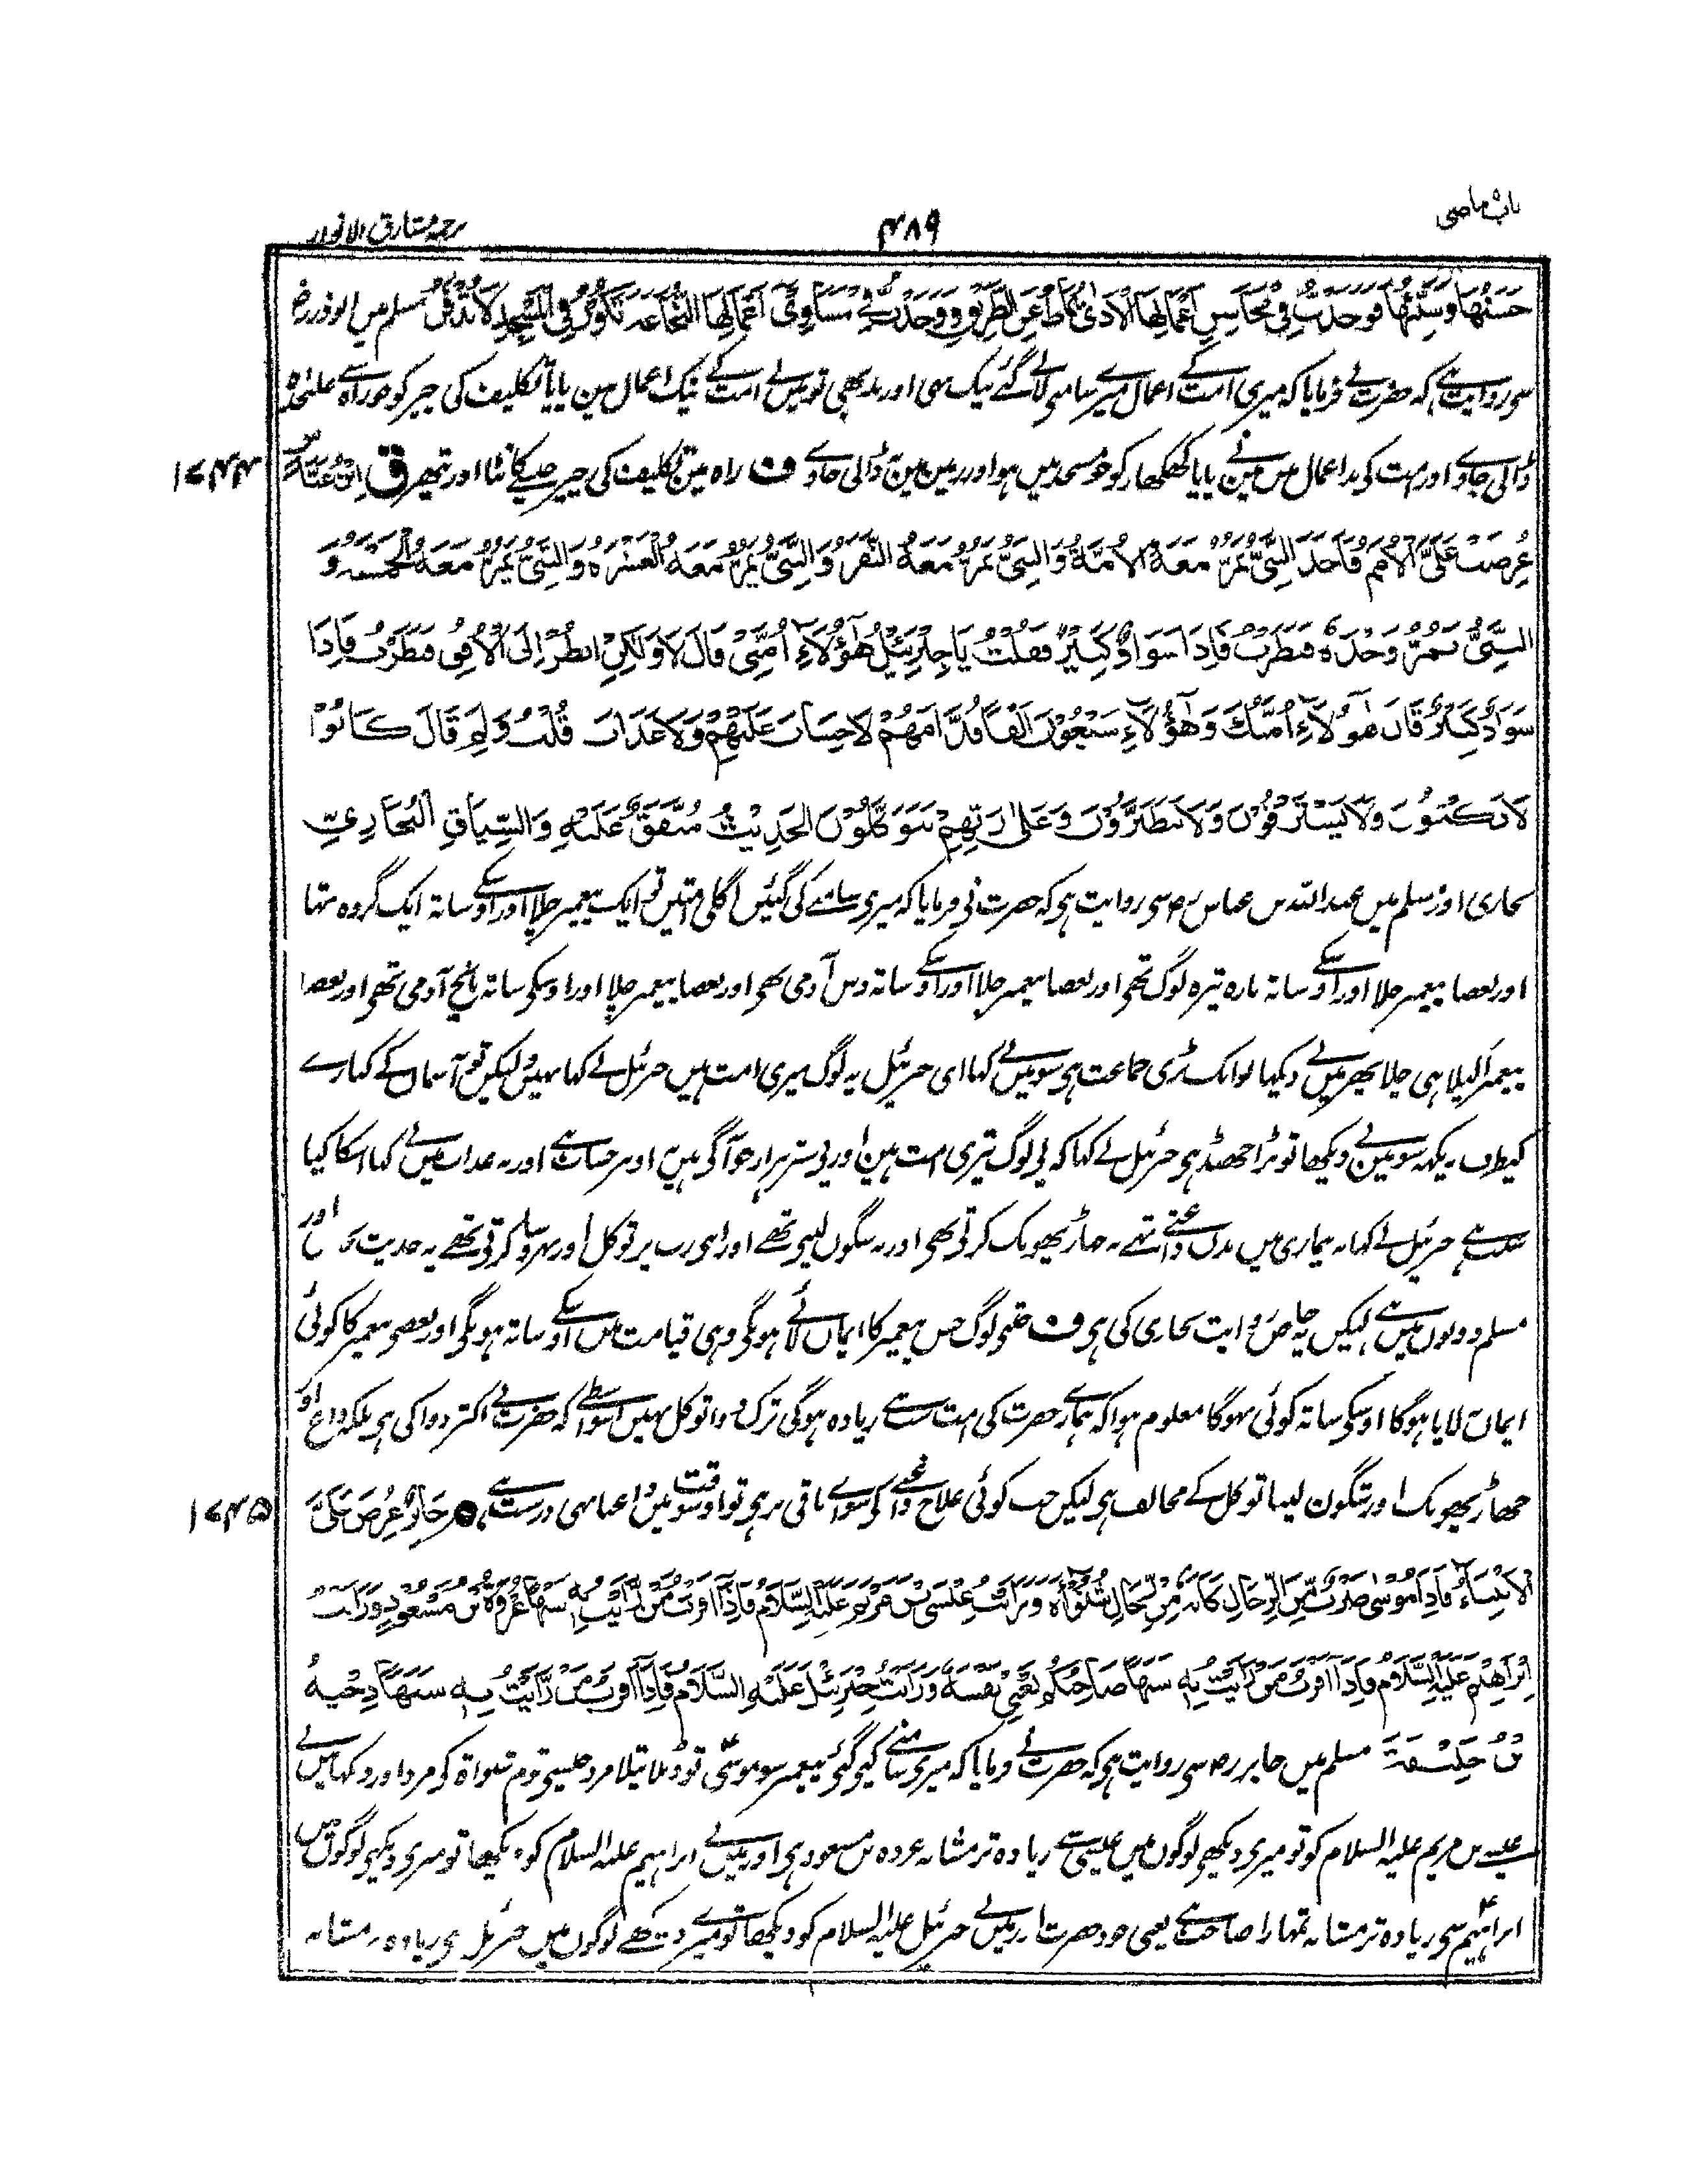 باب ماضی
۴۸۹
ترجمہ مشارق الانوار
حَسَنُهَا وَسَيِّئُهَا فَوَجَدْتُ فِي مَحَاسِنِ أَعْمَالِهَا الْأَذَى يُمَاطُ عَنِ الطَّرِيقِ وَوَجَدْتُ فِي مَسَاوِي أَعْمَالِهَا النُّخَاعَةَ تَكُونُ فِي الْمَسْجِدِ لَا تُدْفَنُ مسلم میں ابوذر رض
سی روایت ہے کہ حضرت نے فرمایا کہ میری امت کے اعمال میرے سامنی لائے گئے نیک بھی اور بد بھی تو میں نے امت کے نیک اعمال مین پایا تکلیف کی چیز کو جو راہ سے علیحدہ
ڈالی جاوے اور امت کی بد اعمال میں مین نے پایا کھکھار کو جو مسجد میں ہو اور زمین مین نہ ڈالی جاوے ف راہ مین تکلیف کی چیز جیسے کانٹا اور پتھر ق ابن عباس
۱۷۴۴
عُرِضَتْ عَلَيَّ الْأُمَمُ فَأَخَذَ النَّبِيُّ يَمُرُّ مَعَهُ الْأُمَّةُ وَالنَّبِيُّ يَمُرُّ مَعَهُ النَّفَرُ وَالنَّبِيُّ يَمُرُّ مَعَهُ الْعَشَرَةُ وَالنَّبِيُّ يَمُرُّ مَعَهُ الْخَمْسَةُ وَ
النَّبِيُّ يَمُرُّ وَحْدَهُ فَنَظَرْتُ فَإِذَا سَوَادٌ كَثِيرٌ فَقُلْتُ يَا جِبْرَئِيلُ هَؤُلَاءِ أُمَّتِي قَالَ لَا وَلَكِنِ انْظُرْ إِلَى الْأُفُقِ فَنَظَرْتُ فَإِذَا
سَوَادٌ كَثِيرٌ قَالَ هَؤُلَاءِ أُمَّتُكَ وَهَؤُلَاءِ سَبْعُونَ أَلْفًا قُدَّامَهُمْ لَا حِسَابَ عَلَيْهِمْ وَلَا عَذَابَ قُلْتُ وَلِمَ قَالَ كَانُوا
لَا يَكْتَوُونَ وَلَا يَسْتَرْقُونَ وَلَا يَتَطَيَّرُونَ وَعَلَى رَبِّهِمْ يَتَوَكَّلُونَ الْحَدِيثُ مُتَّفَقٌ عَلَيْهِ وَالسِّيَاقُ لِلْبُخَارِيِّ
بخاری اور مسلم میں عبداللہ بن عباس رض سی روایت ہی کہ حضرت نی فرمایا کہ میری سامنے کی گئیں اگلی امتیں تو ایک پیغمبر چلا اور اوسکے ساتہ ایک گروہ تہا
اور بعضا پیغمبر چلا اور اوسکے ساتہ بارہ تیرہ لوگ تھی اور بعضا پیغمبر چلا اور اوسکے ساتہ دس آدمی تھی اور بعضا پیغمبر چلا اور اوسکی ساتہ پانچ آدمی تھی اور بعضا
پیغمبر اکیلا ہی چلا پھر میں نے دیکھا تو ایک بڑی جماعت ہی سو میں نے کہا ای جبرئیل یہ لوگ میری امت ہیں جبرئیل نے کہا نہیں ولیکن تو آسمان کے کنارے
کیطرف دیکہہ سو مین نے دیکھا تو بڑا جھنڈ ہی جبرئیل نے کہا کہ یی لوگ تیری امت ہین اور یی ستر ہزار جو آگی ہیں انپر نہ حساب ہے اور نہ عذاب میں نے کہا اسکا کیا
سبب ہے جبرئیل نے کہا نہ بیماری میں بدن داغتے تہے نہ جھاڑ پھونک کرتی تھی اور نہ شگون لیتی تھے اور اپنی رب پر توکل اور بہروسا کرتی تھے یہ حدیث بخاری اور
مسلم دونوں میں ہے لیکن یہ خاص روایت بخاری کی ہی ف جتنی لوگ جس پیغمبر کا ایمان لائے ہونگی وہی قیامت میں اوسکے ساتہ ہونگی اور بعضی پیغمبر کا کوئی
ایمان نہ لایا ہوگا اوسکی ساتہ کوئی نہوگا معلوم ہوا کہ ہمارے حضرت کی امت سب سے زیادہ ہوگی ترک دوا توکل نہیں اسواسطے کہ حضرت نے اکثر دوا کی ہی بلکہ داغ اور
جھاڑ پھونک اور شگون لینا توکل کے مخالف ہی لیکن جب کوئی علاج داغنے کی سواے باقی نرہی تو اوسوقت میں داغنا بھی درست ہے، م جَابِرٌ عُرِضَ عَلَيَّ
۱۷۴۵
الْأَنْبِيَاءُ فَإِذَا مُوسَى ضَرْبٌ مِنَ الرِّجَالِ كَأَنَّهُ مِنْ رِجَالِ شَنُوءَةَ وَرَأَيْتُ عِيسَى بْنَ مَرْيَمَ عَلَيْهِ السَّلَامُ فَإِذَا أَقْرَبُ مَنْ رَأَيْتُ بِهِ شَبَهًا عُرْوَةُ بْنُ مَسْعُودٍ وَرَأَيْتُ
إِبْرَاهِيمَ عَلَيْهِ السَّلَامُ فَإِذَا أَقْرَبُ مَنْ رَأَيْتُ بِهِ شَبَهًا صَاحِبُكُمْ يَعْنِي نَفْسَهُ وَرَأَيْتُ جِبْرَئِيلَ عَلَيْهِ السَّلَامُ فَإِذَا أَقْرَبُ مَنْ رَأَيْتُ بِهِ شَبَهًا دِحْيَةُ
بْنُ خَلِيفَةَ مسلم میں جابر رض سی روایت ہی کہ حضرت نے فرمایا کہ میری سامنے کیی گئی پیغمبر سو موسیٰ تو دبلا پتلا مرد جیسی قوم شنواۃ کی مرد اور دیکہا میں نے
عیسے بن مریم علیہ السلام کو تو میری دیکھی لوگوں میں عیسی سے زیادہ تر مشابہ عروہ بن مسعود ہی اور میں نے ابراہیم علیہ السلام کو دیکھا تو میری دیکہی لوگوں میں
ابراہیم سی زیادہ تر مشابہ تمہارا صاحب ہے یعنی خود حضرت اور میں نے جبرئیل علیہ السلام کو دیکھا تو میرے دیکھے لوگوں میں جبرئیل سی زیادہ تر مشابہ